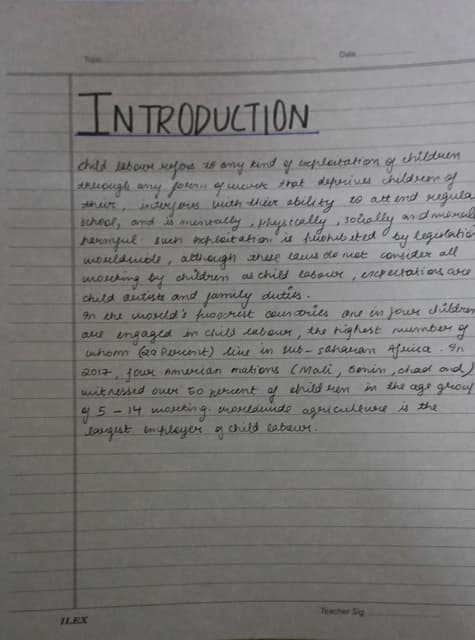 Topic
Date
INTRODUCTION
child labour refers to any kind of exploitation of children
through any form of work that deprives children of
their, interfers with their ability to attend regula
school, and is mentally, physically, socially and moral
harmful such exploitation is prohibited by legislation
worldwide, although these laws do not consider all
working by children as child labour, expectations are
child artists and family duties.
In the world's poorest countries one in four children
are engaged in child labour, the highest number of
whom (29 Percent) live in sub-saharan Africa. In
2017, four American nations (Mali, Benin, chad and)
witnessed over 50 percent of children in the age group
of 5 - 14 working. worldwide agriculture is the
largest employer of child labour.
ILEX
Teacher Sig